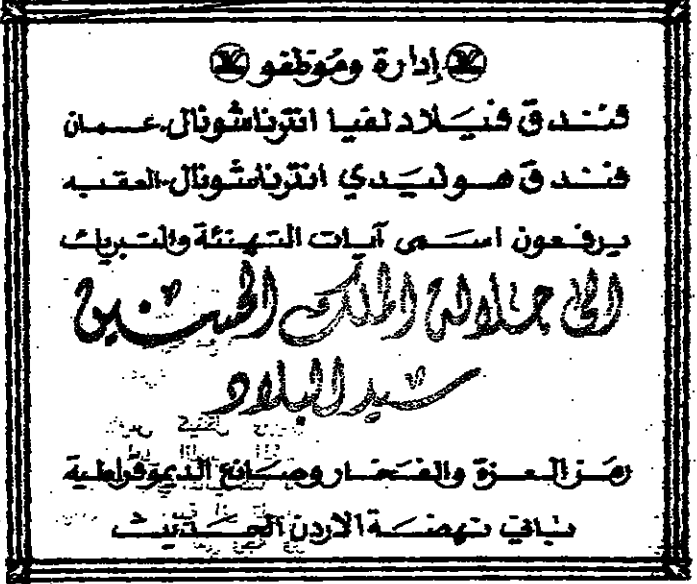 إدارة وموظفو
فندق فيلادلفيا انترناشونال-عمان
فندق هوليدي انترناشونال-العقبه
يرفعون اسمى آيات التهنئة والتبريك
الى جلالة الملك الحسين
سيد البلاد
رمز العزة والفخار وصانع الديموقراطية
باني نهضة الاردن الحديث